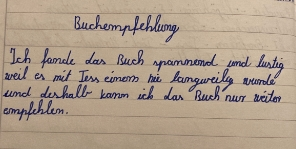 Buchempfehlung
Ich fande das Buch spannend und lustig
weil es mit Jess einem nie langweilig wurde
und deshalb kann ich das Buch nur weiter
empfehlen.